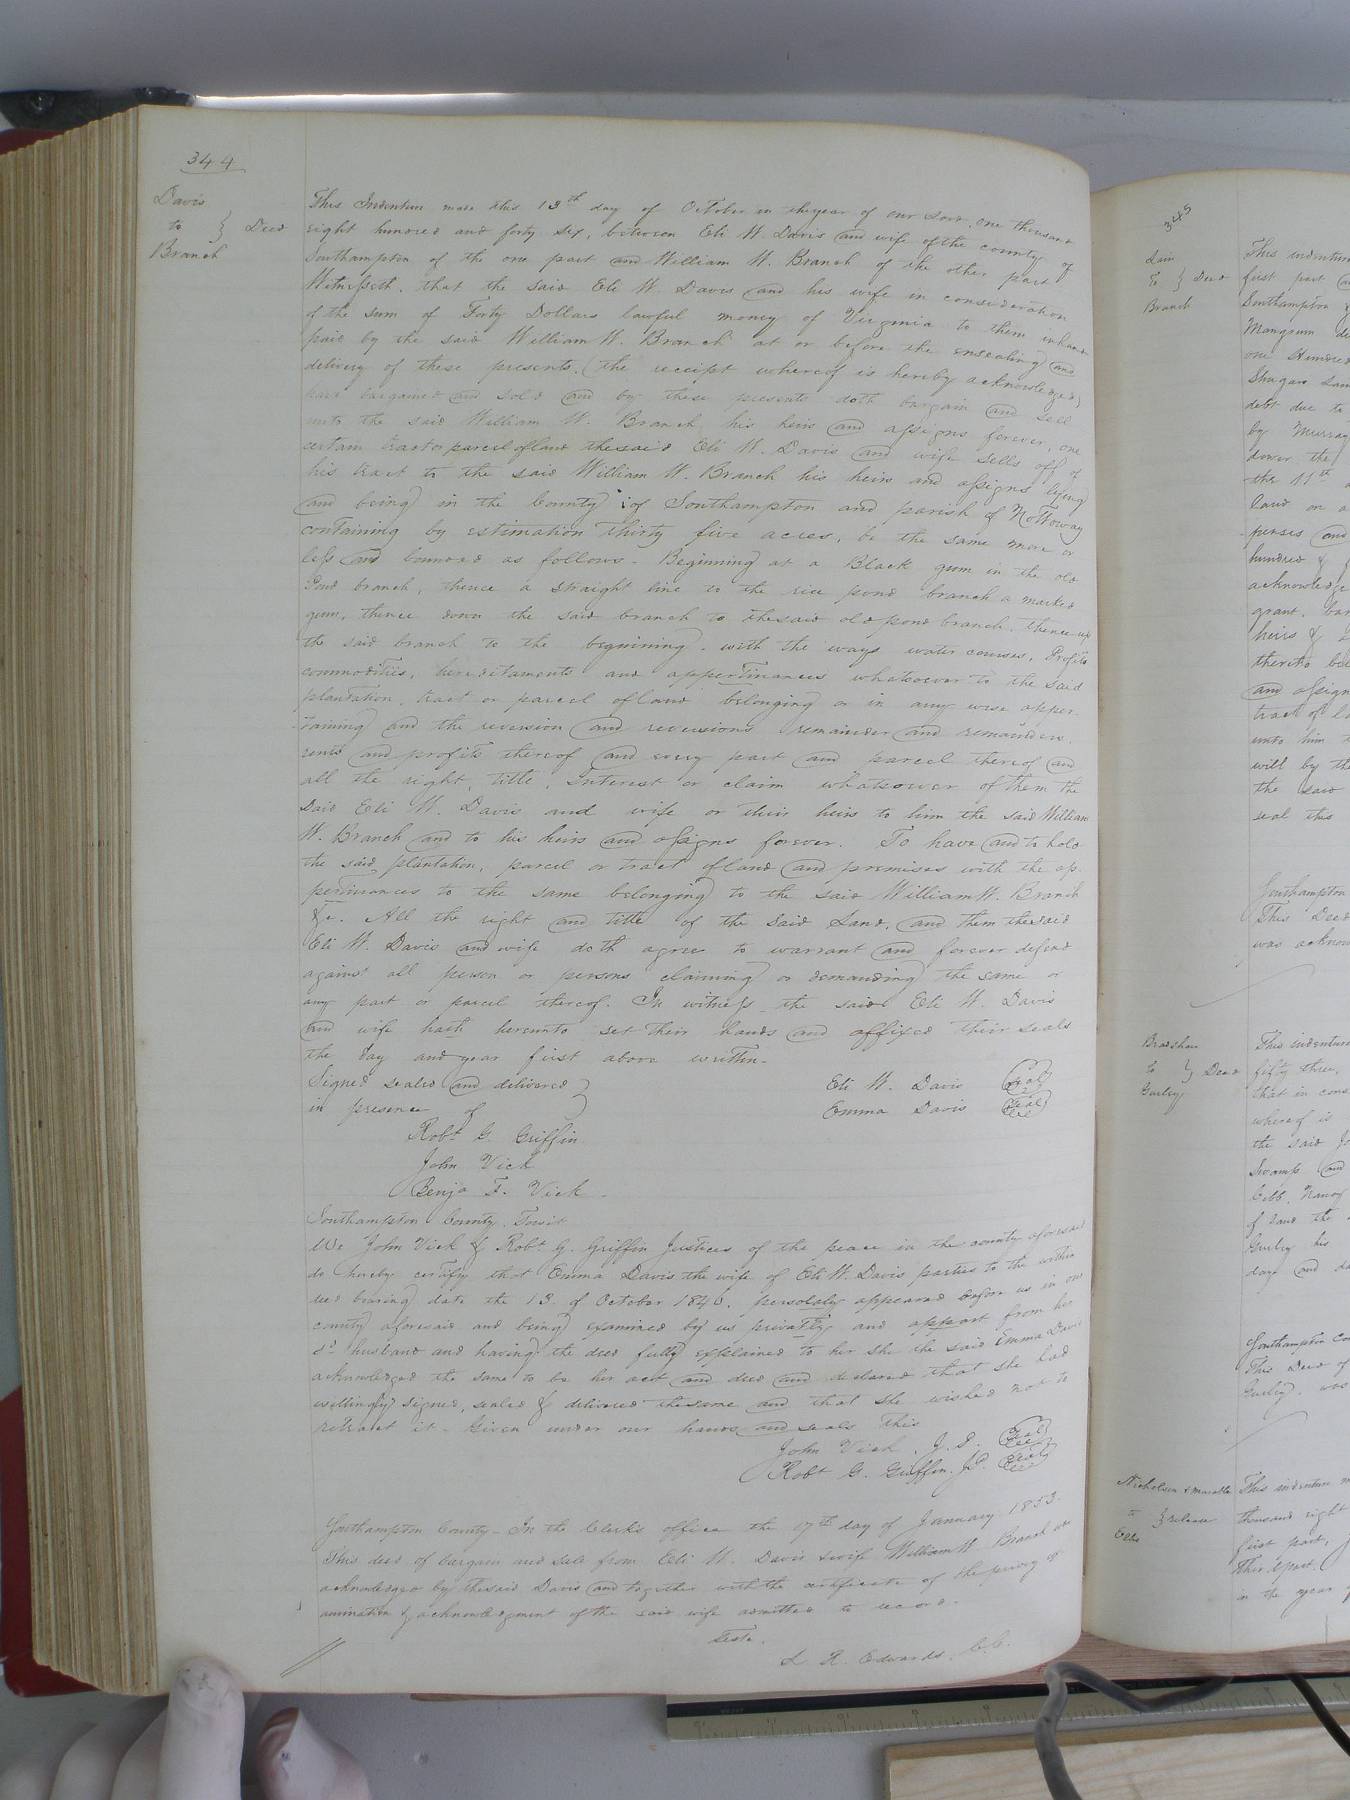 344
Davis
to } Deed
Branch
This Indenture made this 13th day of October in the year of our Lord, one thousand
eight hundred and forty six, between Eli W. Davis and wife of the county of
Southampton of the one part and William W. Branch of the other part
Witnesseth, that the said Eli W. Davis and his wife in consideration
of the sum of Forty Dollars lawful money of Virginia to them in hand
paid by the said William W. Branch at or before the ensealing and
delivery of these presents, (the receipt whereof is hereby acknowledged)
have bargained and sold and by these presents doth bargain and sell
unto the said William W. Branch, his heirs and assigns forever, one
certain tract or parcel of land the said Eli W. Davis and wife sells off of
his tract to the said William W. Branch his heirs and assigns lying
and being in the County of Southampton and parish of Nottoway
containing by estimation thirty five acres, be the same more or
less and bounded as follows - Beginning at a Black gum in the old
Pond branch, thence a straight line to the rice pond branch a marked
gum, thence down the said branch to the said old pond branch, thence up
the said branch to the beginning, with the ways water courses, Profits
commodities, hereditaments and appertinances whatsoever to the said
plantation, tract or parcel of land belonging or in any wise apper-
-taining and the reversion and reversions remainder and remainders
rents and profits thereof and every part and parcel thereof and
all the right, title, interest or claim whatsoever of them the
said Eli W. Davis and wife or their heirs to him the said William
W. Branch and to his heirs and assigns forever. To have and to hold
the said plantation, parcel or tract of land and premises with the ap-
pertinances to the same belonging to the said William W. Branch
&c. All the right and title of the said Land, and them the said
Eli W. Davis and wife doth agree to warrant and forever defend
against all person or persons claiming or demanding the same or
any part or parcel thereof. In witness the said Eli W. Davis
and wife hath hereunto set their hands and affixed their seals
the day and year first above written -
Signed sealed and delivered } Eli W. Davis Seal
in presence of Emma Davis Seal
Robt G. Griffin
John Vick
Benja F. Vick -
Southampton County Towit
We John Vick & Robt G. Griffin Justices of the peace in the county aforesaid
do hereby certify that Emma Davis the wife of Eli W. Davis parties to the within
deed bearing date the 13 of October 1846, persolaly appeared before us in our
county aforesaid and being examined by us privatly and appart from her
sd husband and having the deed fully explained to her she the said Emma Davis
acknowledged the same to be her act and deed and declared that she had
willingly signed, sealed & delivered the same and that she wished not to
retract it - Given under our hands and seals this
John Vick, J.P. Seal
Robt G. Griffin. J.P. Seal
Southampton County - In the Clerk's office the 17th day of January 1853.
This deed of bargain and sale from Eli W. Davis & wife William W Branch was
acknowledged by the said Davis and together with the certificate of the privy ex
amination & acknowledgment of the said wife admitted to record.
Teste.
L. R. Edwards, C.C.
345
Lain
to } Deed
Branch
This indenture
first part
Southampton
Mangum
one Hundred
Shugars Land
debt due to
by Murray
dower the
the 11th
land on a
penses and
hundred &
acknowledge
grant, bar
heirs &
thereto bel
and assign
tract of la
unto him
will by the
the said
seal this
Southampton
This Deed
was acknow
Bradshaw
to } Deed
Gurley
This indenture
fifty three,
that in cons
whereof is
the said Jo
Swamp and
Cobb, Nancy
of land the
Gurley his
day and da
Southampton Co
This Deed of
Gurley, was
Nicholson & Marable
to } release
Ellis
This indenture m
thousand eight
first part, J
third part.
in the year